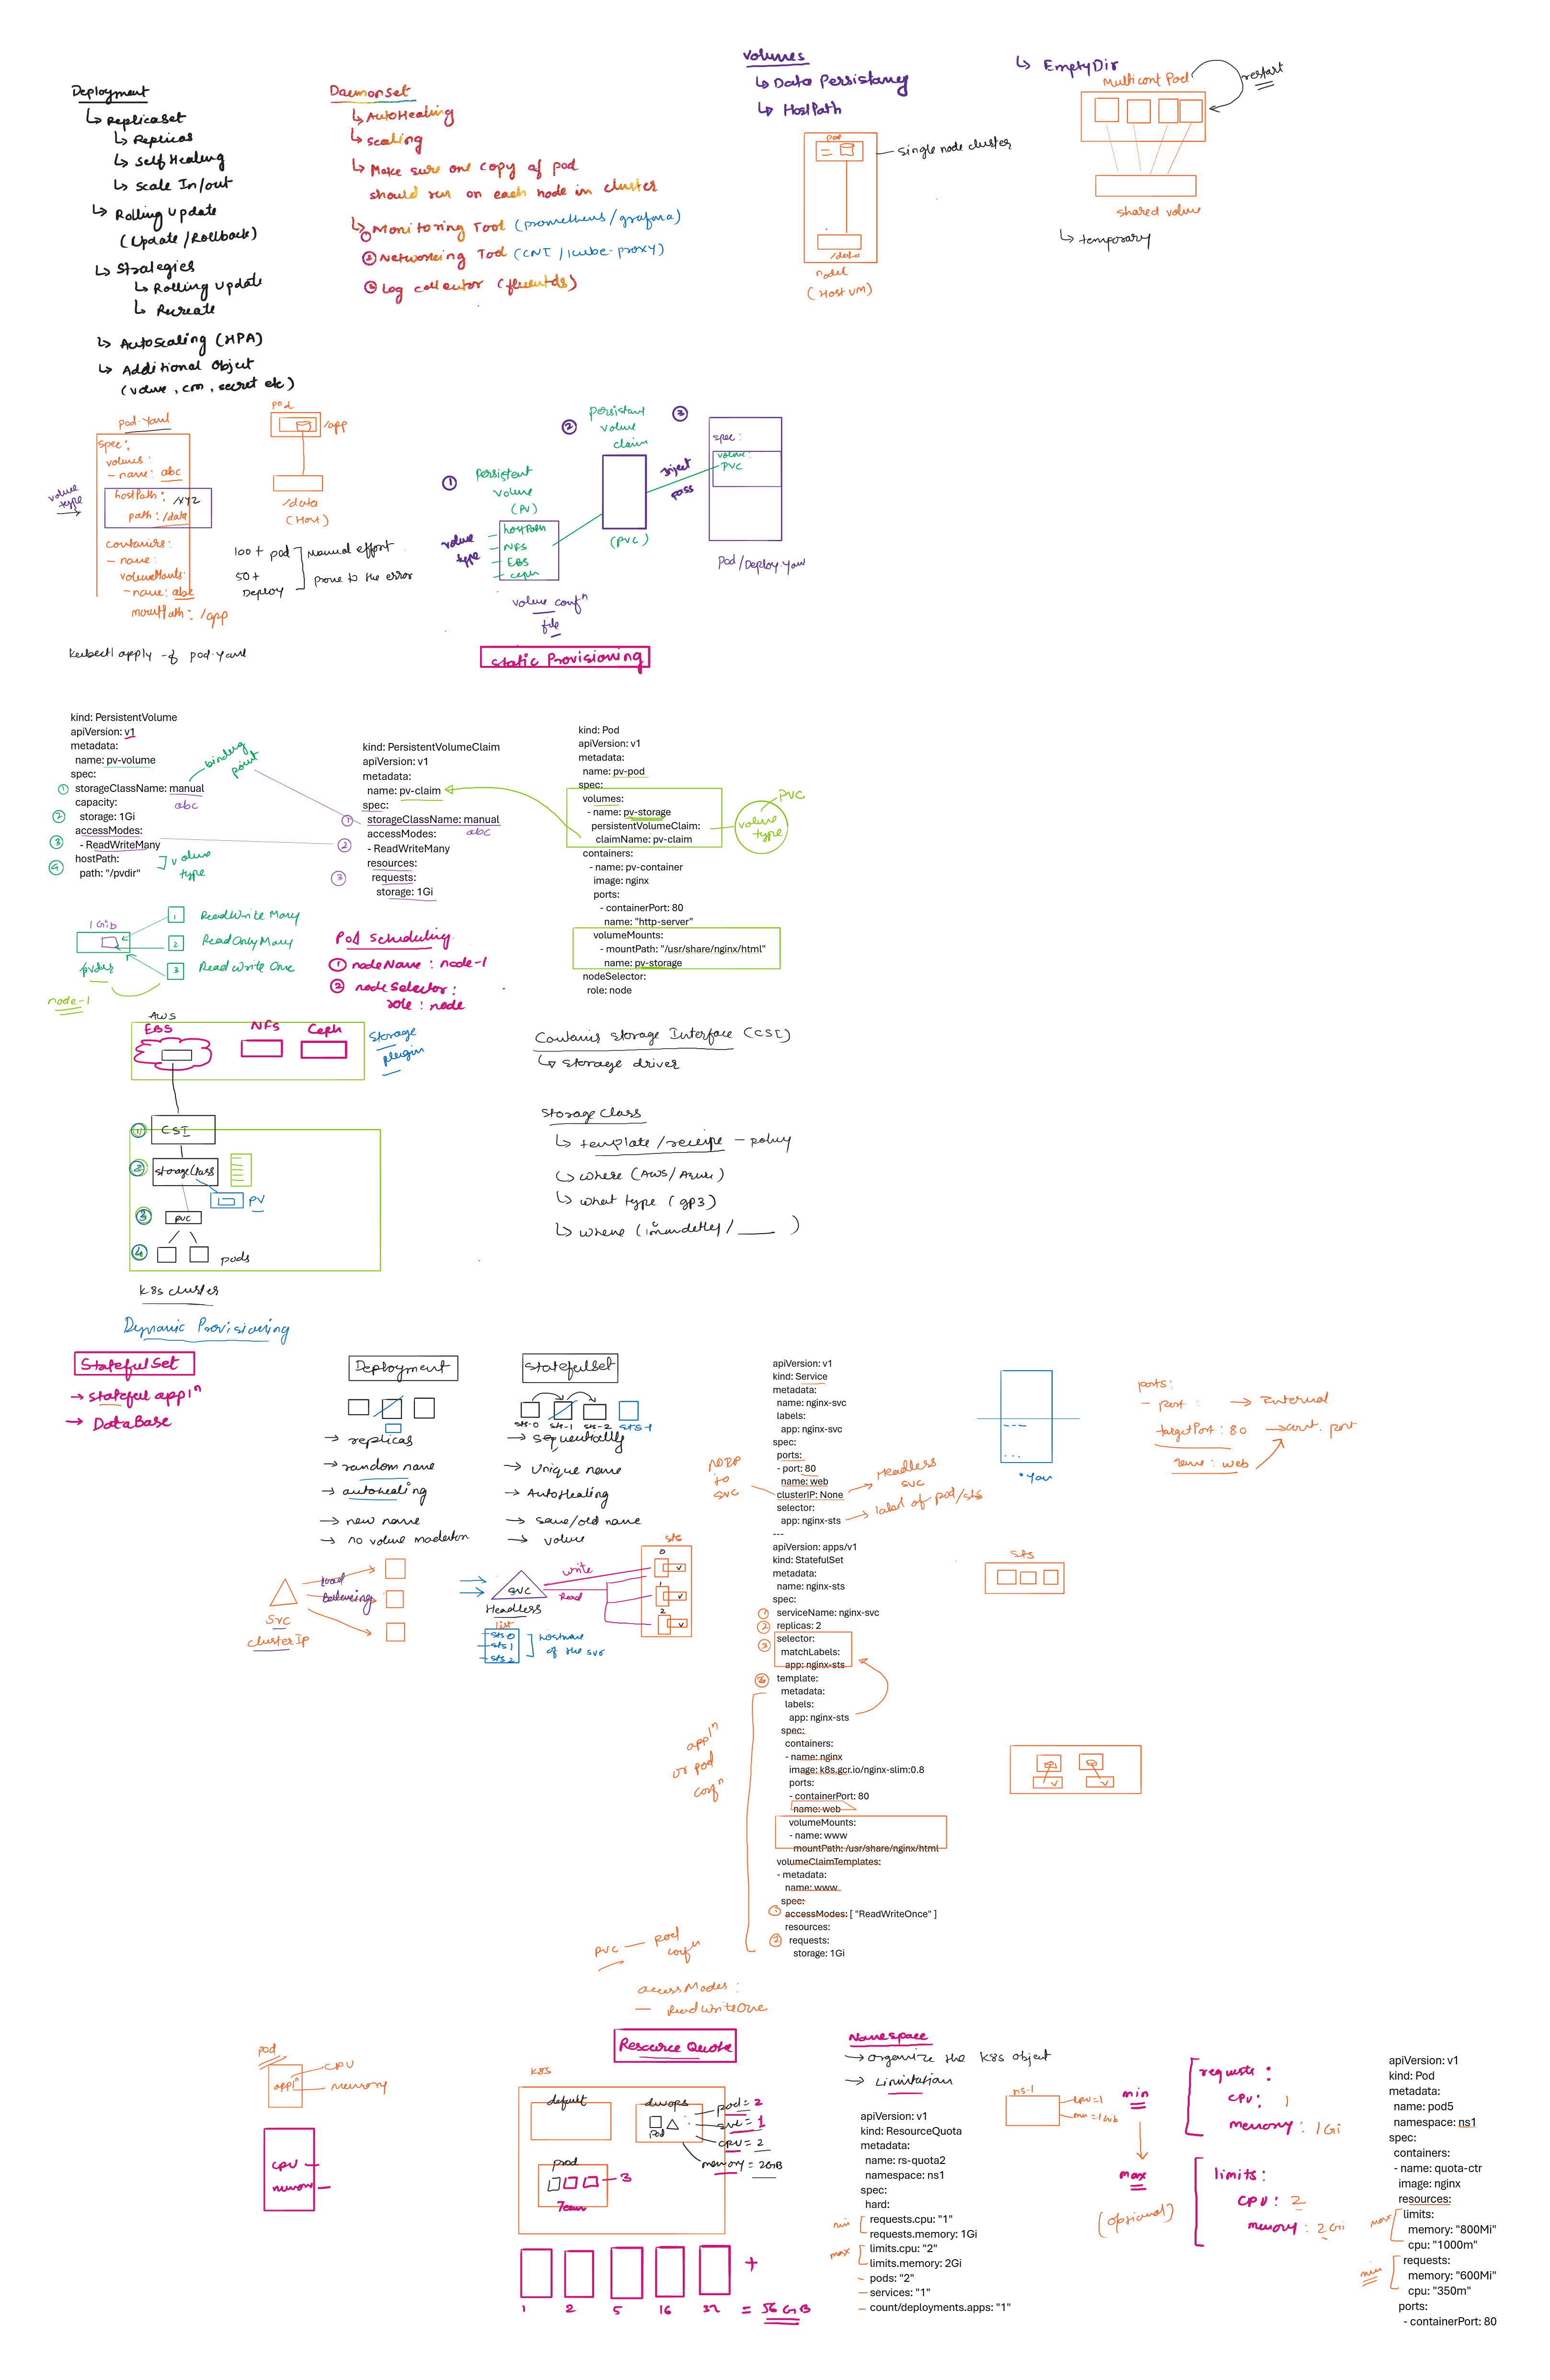 Deployment
↳ ReplicaSet
↳ Replicas
↳ Self Healing
↳ Scale In/out
↳ Rolling Update
(Update/Rollback)
↳ Strategies
↳ Rolling update
↳ Recreate
↳ Autoscaling (HPA)
↳ Additional Object
(volume, cm, secret etc)
Daemonset
↳ AutoHealing
↳ Scaling
↳ Make sure one copy of pod
should run on each node in cluster
↳ ① Monitoring Tool (prometheus/grafana)
② Networking Tool (CNI / kube-proxy)
③ Log collector (fluentds)
Volumes
↳ Data Persistancy
↳ HostPath
pod
single node cluster
/data
node1
(Host VM)
↳ EmptyDir
Multicont Pod
restart
shared volume
↳ temporary
pod.yaml
spec:
volumes:
- name: abc
hostPath: /xyz
path: /data
volume type →
containers:
- name:
volumeMounts:
- name: abc
mountPath: /app
kubectl apply -f pod.yaml
pod
/app
/data
(Host)
100+ pod
50+
Deploy
Manual effort
prone to the error
①
Persistent
volume
(PV)
volume type
hostPath
NFS
EBS
ceph
volume confⁿ
file
②
persistant
volume
claim
(PVC)
Inject
pass
③
spec:
volume:
PVC
Pod/Deploy.yaml
Static Provisioning
kind: PersistentVolume
apiVersion: v1
metadata:
name: pv-volume
spec:
① storageClassName: manual
abc
capacity:
② storage: 1Gi
accessModes:
③ - ReadWriteMany
hostPath:
④ path: "/pvdir"
volume
type
binding
point
kind: PersistentVolumeClaim
apiVersion: v1
metadata:
name: pv-claim
spec:
① storageClassName: manual
abc
accessModes:
② - ReadWriteMany
resources:
③ requests:
storage: 1Gi
kind: Pod
apiVersion: v1
metadata:
name: pv-pod
spec:
volumes:
- name: pv-storage
persistentVolumeClaim:
claimName: pv-claim
containers:
- name: pv-container
image: nginx
ports:
- containerPort: 80
name: "http-server"
volumeMounts:
- mountPath: "/usr/share/nginx/html"
name: pv-storage
nodeSelector:
role: node
PVC
volume
type
1Gib
pvdir
node-1
1 ReadWrite Many
2 ReadOnlyMany
3 Read Write One
Pod Scheduling
① nodeName: node-1
② nodeSelector:
role: node
AWS
EBS
NFS
Ceph
Storage
plugin
① CSI
② StorageClass
PV
③ PVC
④ pods
K8s cluster
Dynamic Provisioning
Storage Interface (CSI)
↳ storage driver
StorageClass
↳ template/receipe - policy
↳ where (AWS/Azure)
↳ what type (gp3)
StatefulSet
→ stateful applⁿ
→ DataBase
Deployment
→ replicas
→ random name
→ autohealing
→ new name
→ no volume
StatefulSet
sts-0
sts-1
sts-2
sts-1
→ sequentially
→ Unique name
→ AutoHealing
→ same/old name
→ volume
load
balancing
svc
clusterIp
svc
Headless
list
sts0
sts1
sts2
hostname
of the svc
write
Read
sts
0
1
2
apiVersion: v1
kind: Service
metadata:
name: nginx-svc
labels:
app: nginx-svc
spec:
ports:
- port: 80
name: web
clusterIP: None
selector:
app: nginx-sts
---
apiVersion: apps/v1
kind: StatefulSet
metadata:
name: nginx-sts
spec:
① serviceName: nginx-svc
② replicas: 2
③ selector:
matchLabels:
app: nginx-sts
③ template:
metadata:
labels:
app: nginx-sts
spec:
containers:
- name: nginx
image: k8s.gcr.io/nginx-slim:0.8
ports:
- containerPort: 80
name: web
volumeMounts:
- name: www
mountPath: /usr/share/nginx/html
volumeClaimTemplates:
- metadata:
name: www
spec:
① accessModes: [ "ReadWriteOnce" ]
resources:
② requests:
storage: 1Gi
to
svc
Headless
svc
label of pod/sts
applⁿ
or pod
confⁿ
PVC — pod
confⁿ
accessModes:
— ReadWriteOne
ports:
- port: → Internal
targetPort: 80 → cont. port
name: web
sts
Resource Quota
pod
applⁿ
CPU
memory
CPU
memory
k8s
default
devops
pod
pod = 2
svc = 1
CPU = 2
memory = 2GB
prod
3
1
2
5
16
32
+
= 56 GB
Namespace
→ organize the K8s object
→ Limitation
apiVersion: v1
kind: ResourceQuota
metadata:
name: rs-quota2
namespace: ns1
spec:
hard:
min
requests.cpu: "1"
requests.memory: 1Gi
max
limits.cpu: "2"
limits.memory: 2Gi
pods: "2"
services: "1"
count/deployments.apps: "1"
ns-1
cpu=1
min
max
(optional)
requests:
CPU: 1
memory: 1Gi
limits:
CPU: 2
memory: 2Gi
apiVersion: v1
kind: Pod
metadata:
name: pod5
namespace: ns1
spec:
containers:
- name: quota-ctr
image: nginx
resources:
max
limits:
memory: "800Mi"
cpu: "1000m"
min
requests:
memory: "600Mi"
cpu: "350m"
ports:
- containerPort: 80